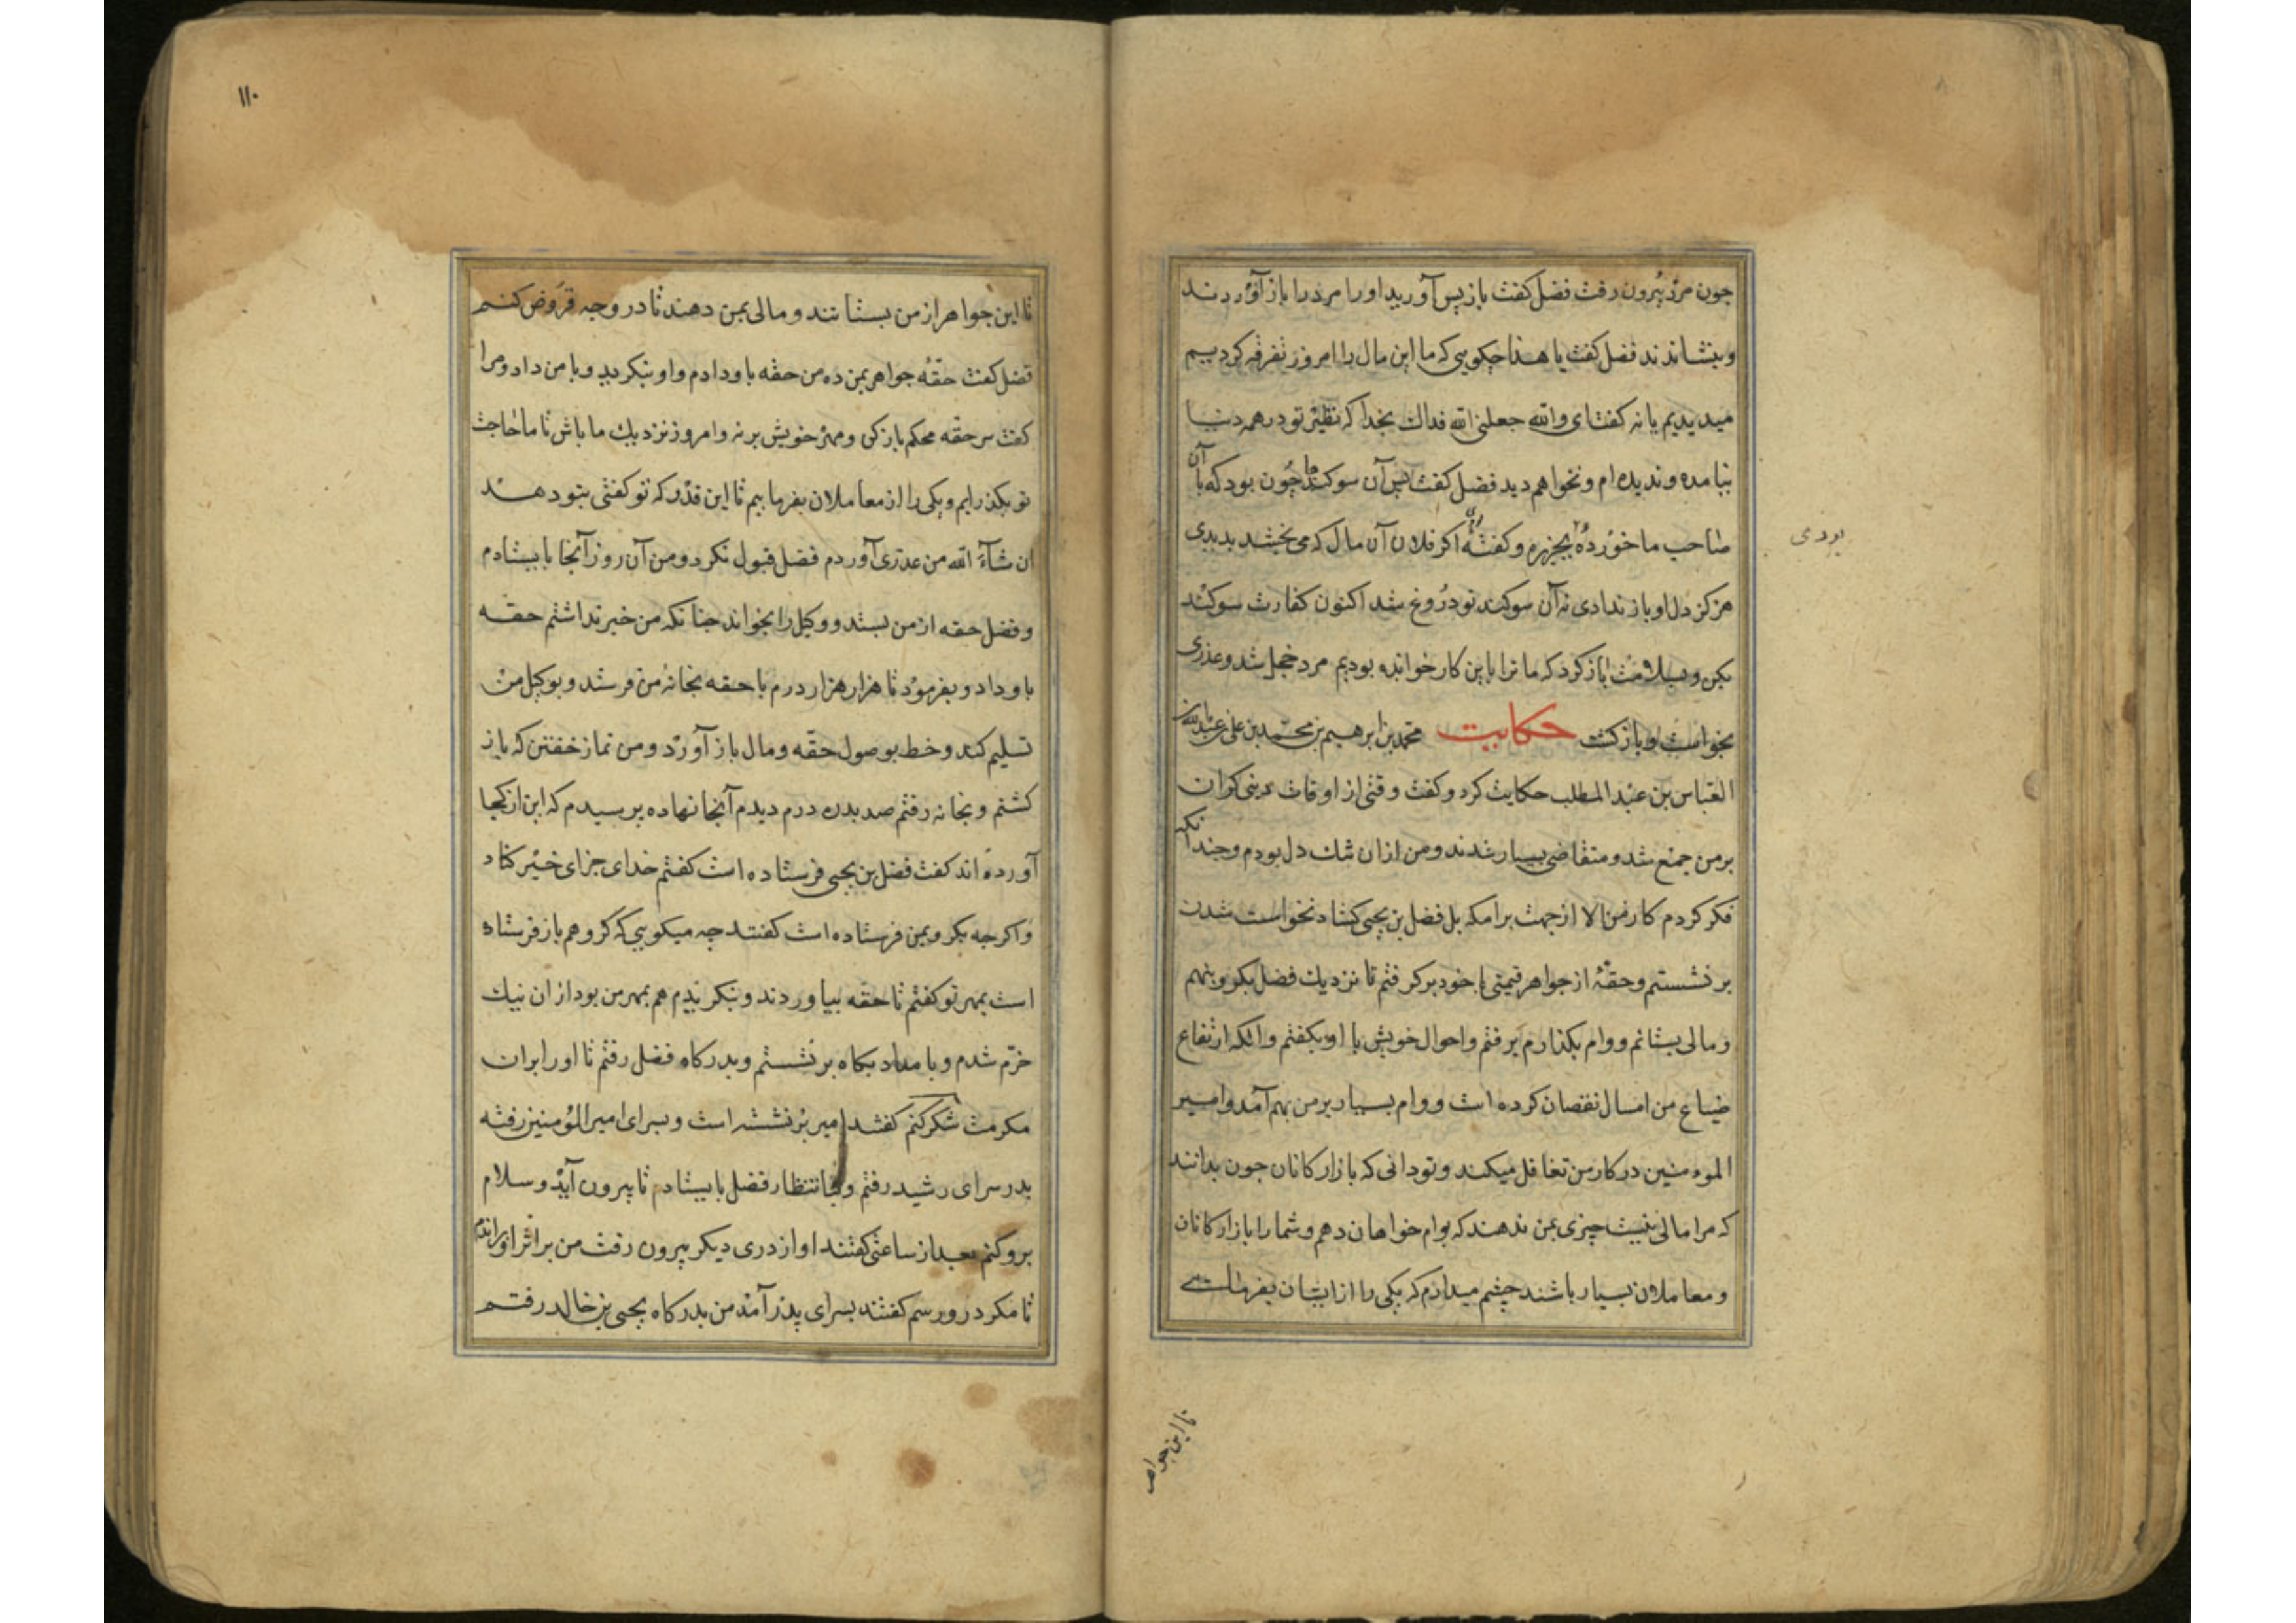 چون مرد بیرون رفت فضل کفت باز پس آورید اورا مرد را باز آوردند
و بنشاندند فضل کفت یا هذا چکویی که ما این مال را امروز تفرقه کردیم
میدیدیم یا نه کفت ای والله جعلنی الله فداک بخدا که نظیر تو در همه دنیا
نیامده و ندیده ام و نخواهم دید فضل کفت پس آن سوکند ما چون بود که با آن
صاحب ما خورده و کفته اکر فلان آن مال که می بخشد بدیدی
بودی
هرکز دل او باز ندادی نه آن سوکند تو دروغ شد اکنون کفارت سوکند
بکن و بسلامت باز کرد که ما ترا باین کار خوانده بودیم مرد خجل شد و عذری
بخواست و باز کشت حکایت محمد بن ابرهیم بن محمد بن علی بن عبدالله بن
العباس بن عبد المطلب حکایت کرد و کفت وقتی از اوقات دینی کران
بر من جمع شد و متقاضی بسیار شدند و من ازان تنک دل بودم و چندانکه
فکر کردم کار من الا از جهت برامکه بل فضل بن یحیی کشاد نخواست شدن
بر نشستم و حقهٔ از جواهر قیمتی با خود برکرفتم تا نزدیک فضل بکرو بنهم
و مالی بستانم و وام بکذارم برفتم و احوال خویش با او بکفتم و آنکه ارتفاع
ضیاع من امسال نقصان کرده است و وام بسیار بر من بهم آمد و امیر
المومنین در کار من تغافل میکند و تو دانی که بازارکانان چون بدانند
که مرا مالی نیست چیزی بمن ندهند که بوام خواهان دهم و شما را بازارکانان
و معاملان بسیار باشند چشم میدارم که یکی را از ایشان بفرمائی
تا این جواهر
١١٠
تا این جواهر از من بستانند و مالی بمن دهند تا در وجه قروض کنم
فضل کفت حقهٔ جواهر بمن ده من حقه باو دادم و او بنکرید و با من داد و مرا
کفت سر حقه محکم باز کن و مهر خویش بر نه و امروز نزدیک ما باش تا ما حاجت
تو بکذرایم و یکی را از معاملان بفرماییم تا این قدر که تو کفتی بتو دهند
ان شاء الله من عذری آوردم فضل قبول نکرد و من آن روز آنجا بایستادم
و فضل حقه از من بستد و وکیل را بخواند چنانکه من خبر نداشتم حقه
باو داد و بفرمود تا هزار هزار درم با حقه بخانهٔ من فرستد و بوکیل من
تسلیم کند و خط بوصول حقه و مال باز آورد و من نماز خفتن که باز
کشتم و بخانه رفتم صد بدره درم دیدم آنجا نهاده پرسیدم که این از کجا
آورده اند کفت فضل بن یحیی فرستاده است کفتم خدای جزای خیر کناد
و اکرچه بکرو بمن فرستاده است کفتند چه میکویی که کرو هم باز فرستاده
است بمهر تو کفتم تا حقه بیاوردند و بنکریدم هم بمهر من بود ازان نیک
خرم شدم و بامداد بکاه بر نشستم و بدرکاه فضل رفتم تا اورا بران
مکرمت شکر کنم کفتند امیر بر نشسته است و بسرای امیر المؤمنین رفته
بدر سرای رشید رفتم و بانتظار فضل بایستادم تا بیرون آید و سلام
برو کنم بعد از ساعتی کفتند او از دری دیکر بیرون رفت من بر اثر او براندم
تا مکر درو رسم کفتند بسرای پدر آمد من بدرکاه یحیی بن خالد رفتم